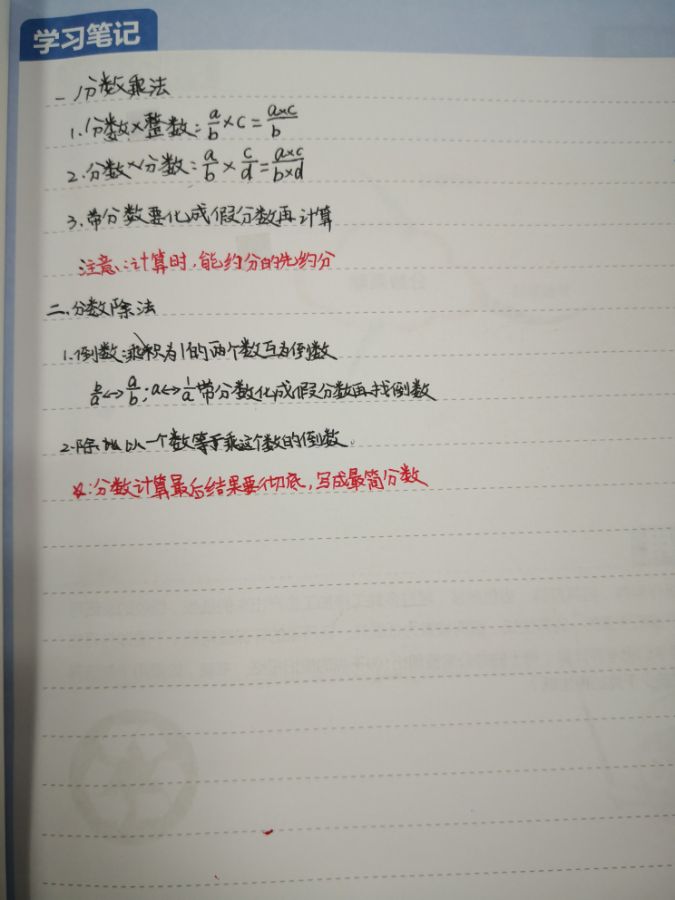 学习笔记
一 分数乘法
1. 分数×整数: a/b×c=a×c/b
2. 分数×分数: a/b×c/d=a×c/b×d
3. 带分数要化成假分数再计算
注意: 计算时,能约分的先约分
二.分数除法
1. 倒数:乘积为1的两个数互为倒数
b/a↔a/b; a↔1/a 带分数化成假分数再找倒数
2. 除以一个数等于乘这个数的倒数。
分数计算最后结果要彻底,写成最简分数